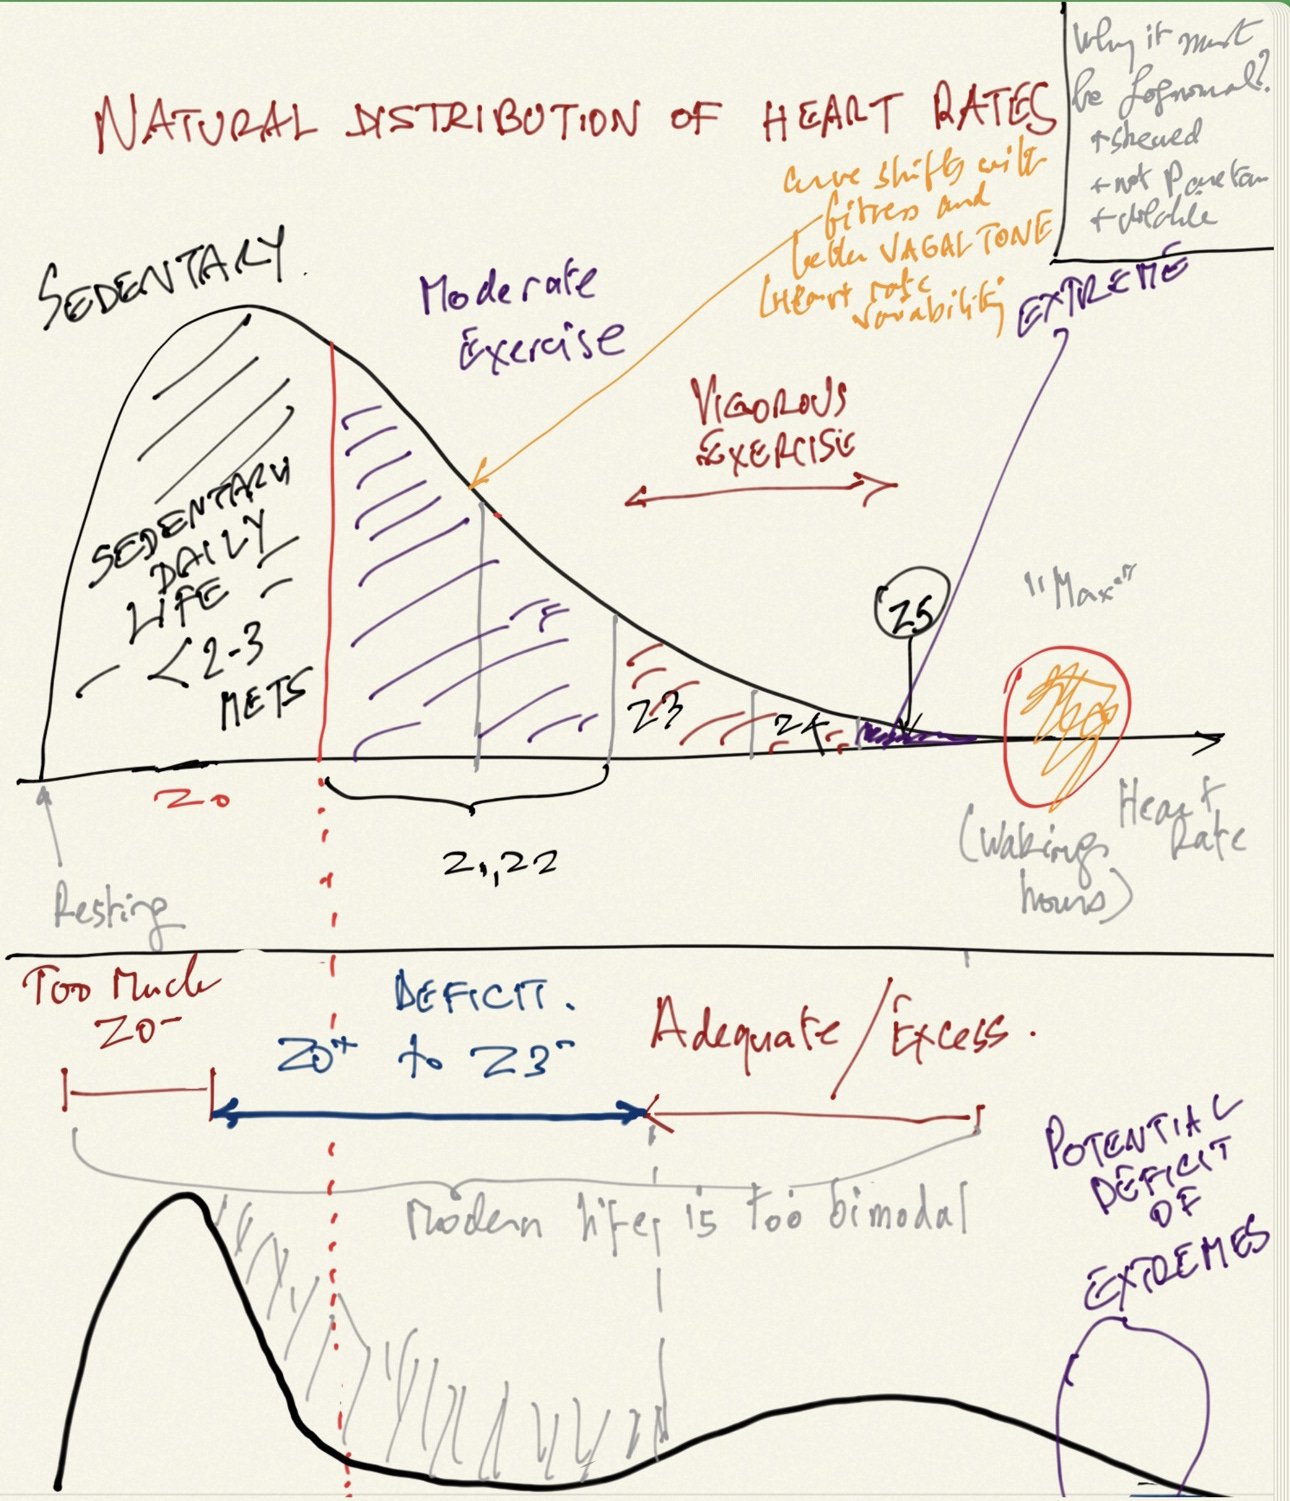 NATURAL DISTRIBUTION OF HEART RATES
Why it must
be Lognormal?
+ skewed
+ not Paretan
curve shifts with
fitness and
better VAGAL TONE
(Heart rate
variability)
SEDENTARY
Moderate
Exercise
EXTREME
VIGOROUS
EXERCISE
SEDENTARY
DAILY
LIFE
<2-3
METS
Z5
"Max"
Z3
Z4
Z0
Z1, Z2
Resting
Heart
Rate
(Waking
hours)
Too Much
Z0-
DEFICIT.
Z0+ to Z3-
Adequate / Excess.
Modern life, is too bimodal
POTENTIAL
DEFICIT
OF
EXTREMES